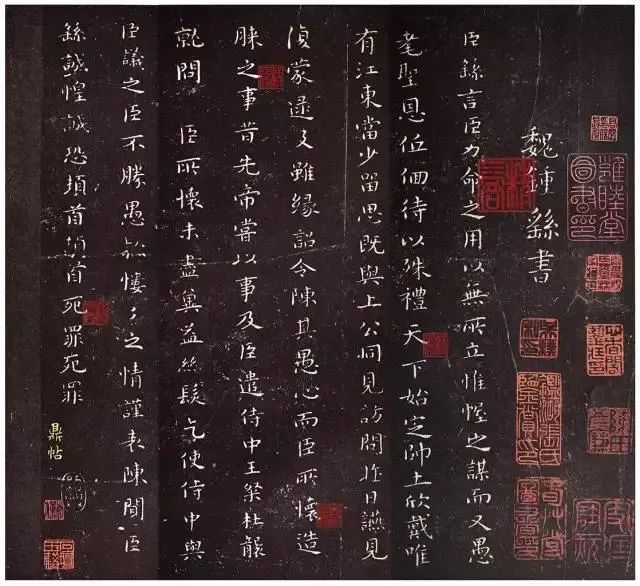 魏鍾繇書
臣繇言臣力命之用以無所立惟幄之謀而又愚
耄聖恩低佪待以殊禮天下始定師士欣戴唯
有江東當少留思既與上公同見訪問昨日讌見
復蒙逮及雖緣詔令陳其愚心而臣所懷造
膝之事昔先帝嘗以事及臣遣侍中王粲杜襲
就問臣所懷未盡冀益絲髮乞使侍中與
臣議之臣不勝愚款慺慺之情謹表陳聞臣
繇誠惶誠恐頓首頓首死罪死罪
鼎帖